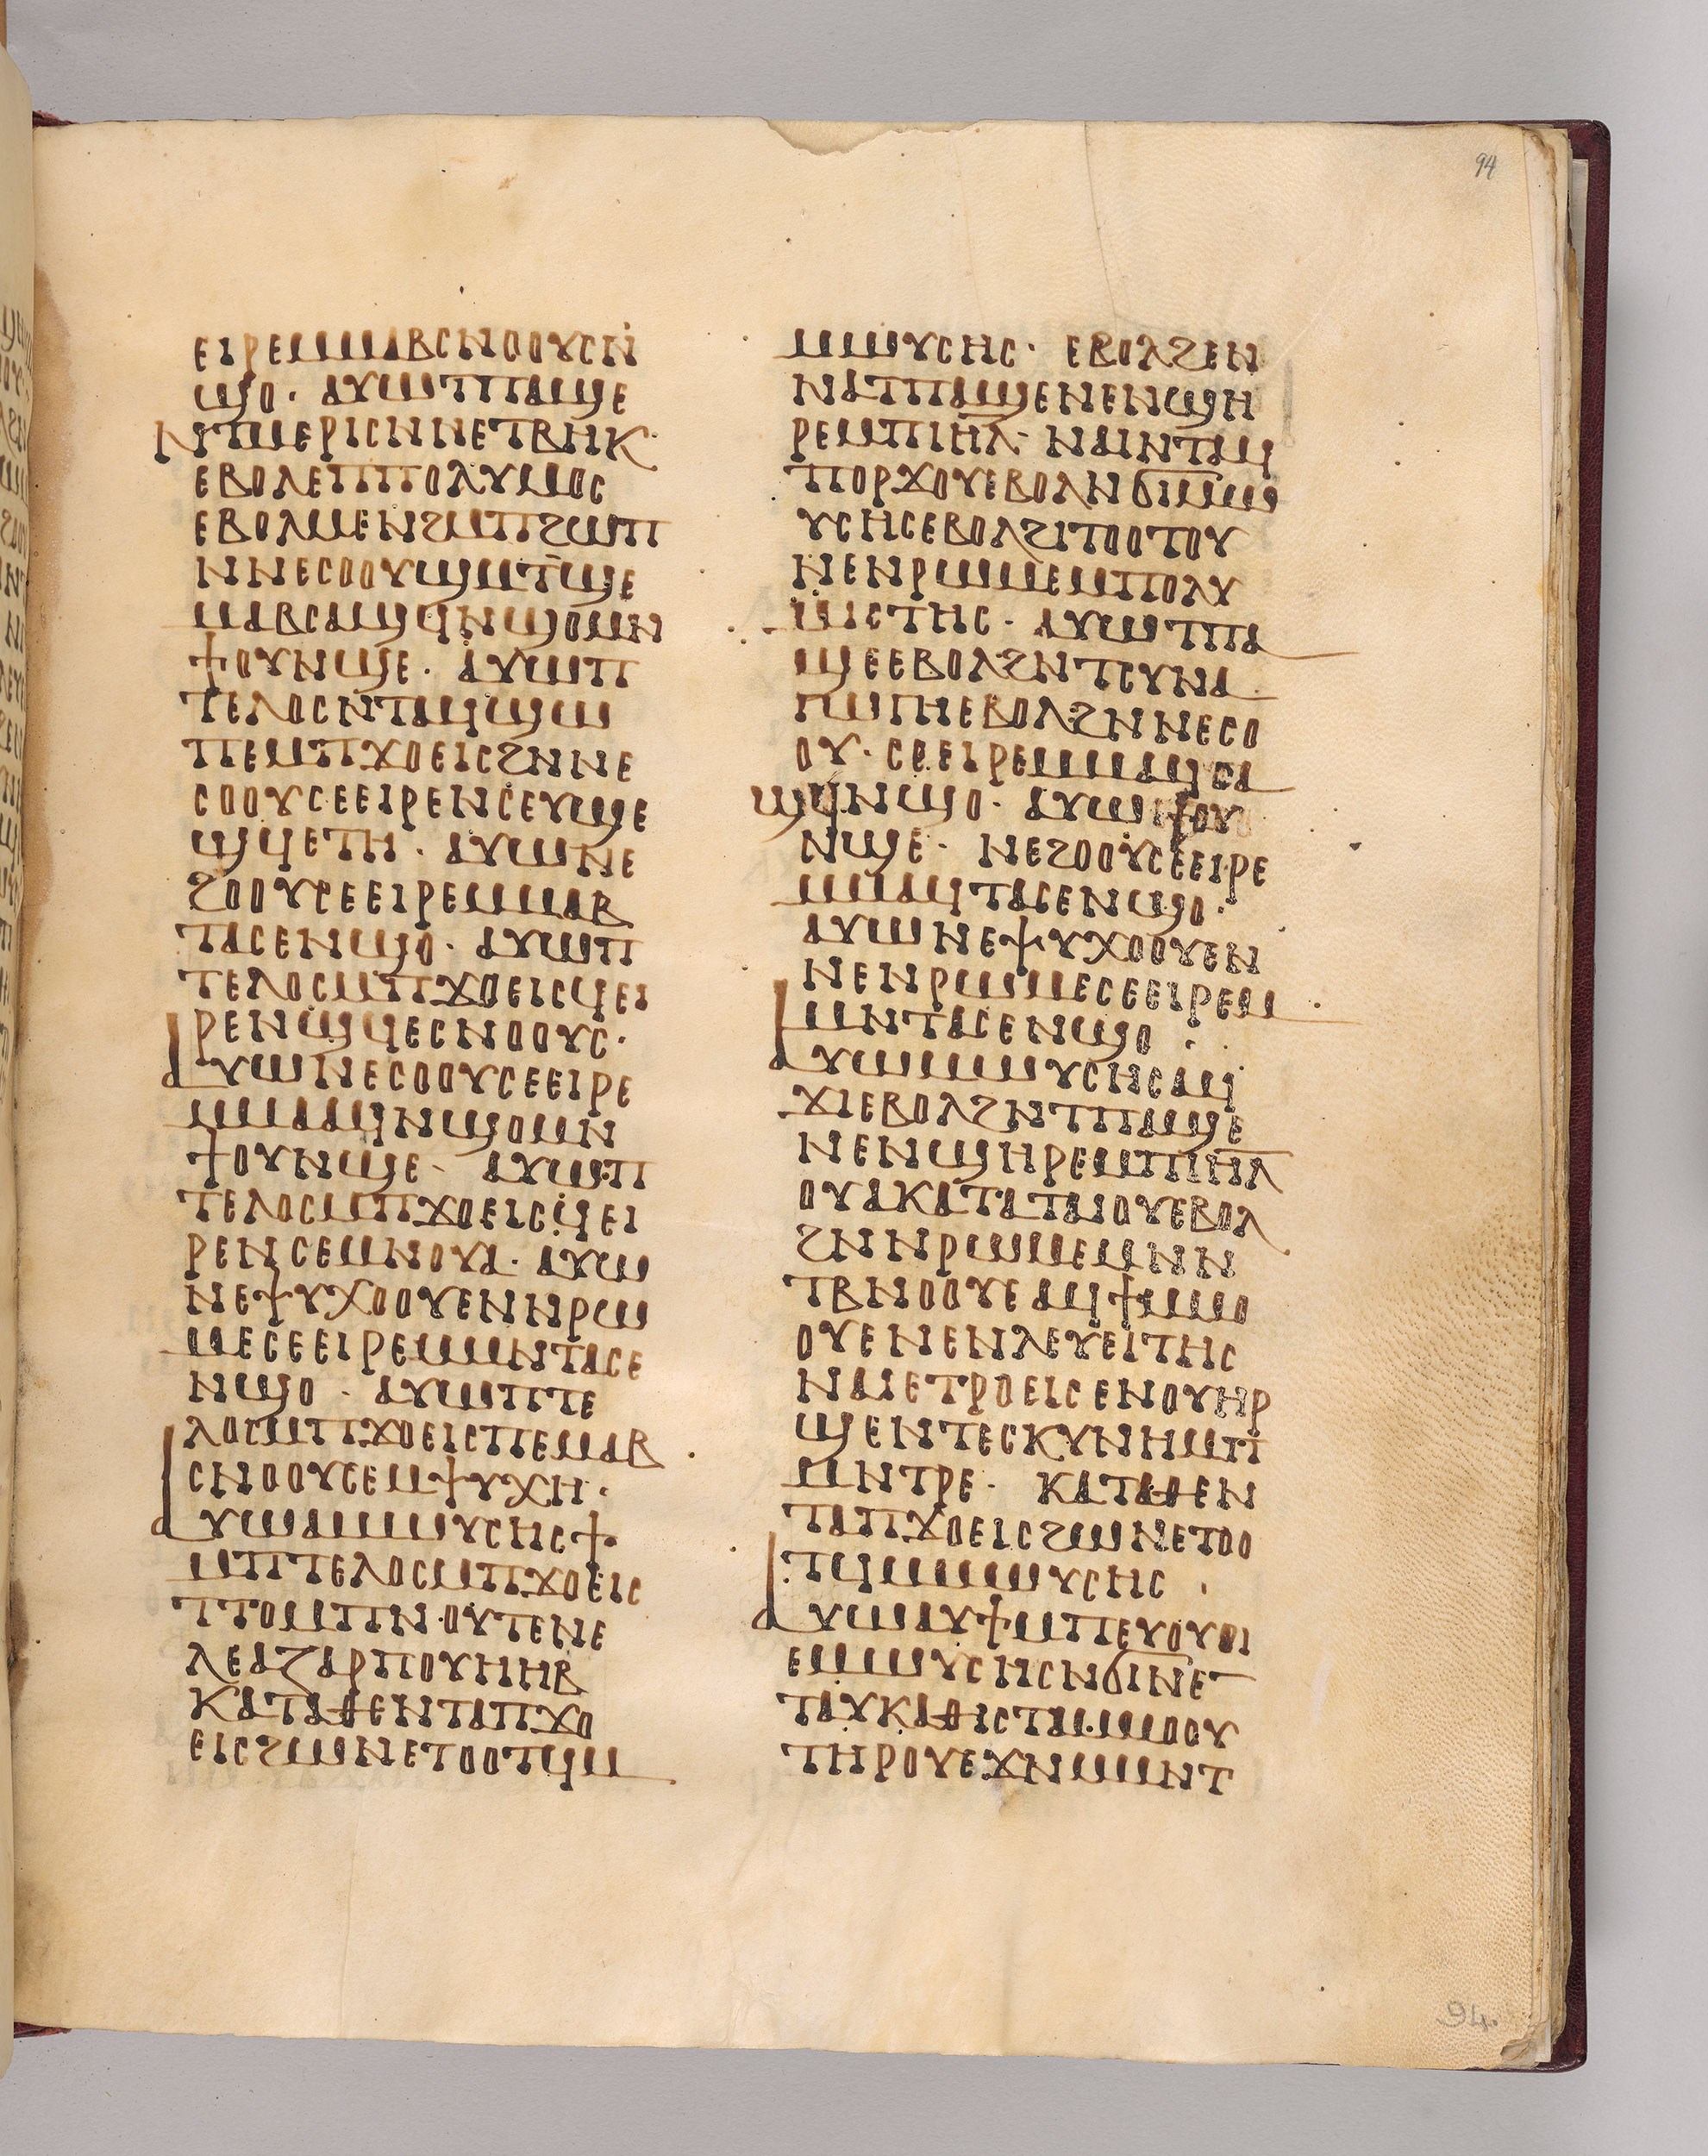 ⲉⲓⲣⲉⲙⲙⲁⲃⲥⲛⲟⲟⲩⲥⲛ̇
ϣⲟ· ⲁⲩⲱⲧⲡⲁϣⲉ
ⲛⲧⲙⲉⲣⲓⲥⲛⲛⲉⲧⲃⲏⲕ·
ⲉⲃⲟⲗⲉⲡⲡⲟⲗⲩⲙⲟⲥ
ⲉⲃⲟⲗⲙⲉⲛϩⲙⲡϩⲱⲡ
ⲛⲛⲉⲥⲟⲟⲩϣⲙⲧ̅ϣⲉ
ⲙⲁⲃⲥⲁϣϥⲛϣⲟⲙⲛ
ϯⲟⲩⲛϣⲉ· ⲁⲩⲱⲡ
ⲧⲉⲗⲟⲥⲛⲧⲁϥϣⲱ
ⲡⲉⲙⲡϫⲟⲉⲓⲥϩⲛⲛⲉ
ⲥⲟⲟⲩⲥⲉⲉⲓⲣⲉⲛⲥⲉⲩϣⲉ
ϣϥⲉⲧⲏ· ⲁⲩⲱⲛⲉ
ϩⲟⲟⲩⲥⲉⲉⲓⲣⲉⲙⲙⲁⲃ
ⲧⲁⲥⲉⲛϣⲟ· ⲁⲩⲱⲡ
ⲧⲉⲗⲟⲥⲙⲡϫⲟⲉⲓⲥϥⲉⲓ
ⲣⲉⲛϣϥⲉⲥⲛⲟⲟⲩⲥ·
ⲁⲩⲱⲛⲉⲥⲟⲟⲩⲥⲉⲉⲓⲣⲉ
ⲙⲙⲁⲁϥⲛϣⲟⲙⲛ
ϯⲟⲩⲛϣⲉ· ⲁⲩⲱⲡ
ⲧⲉⲗⲟⲥⲙⲡϫⲟⲉⲓⲥϥⲉⲓ
ⲣⲉⲛⲥⲉⲙⲛⲟⲩⲁ· ⲁⲩⲱ
ⲛⲉⲯⲩⲭⲟⲟⲩⲉⲛⲛⲣⲱ
ⲙⲉⲥⲉⲉⲓⲣⲉⲙⲙⲛⲧⲁⲥⲉ
ⲛϣⲟ· ⲁⲩⲱⲡⲧⲉ
ⲗⲟⲥⲙⲡϫⲟⲉⲓⲥⲡⲉⲙⲁⲃ
ⲥⲛⲟⲟⲩⲥⲉⲙⲯⲩⲭⲏ·
ⲁⲩⲱⲁⲙⲱⲩⲥⲏⲥϯ
ⲙⲡⲧⲉⲗⲟⲥⲙⲡϫⲟⲉⲓⲥ
ⲡⲧⲟⲙⲡⲛⲟⲩⲧⲉⲛⲉ
ⲗⲉⲁⲍⲁⲣⲡⲟⲩⲏⲏⲃ
ⲕⲁⲧⲁⲑⲉⲛⲧⲁⲡϫⲟ
ⲉⲓⲥϩⲱⲛⲉⲧⲟⲟⲧϥⲙ
ⲙⲱⲩⲥⲏⲥ· ⲉⲃⲟⲗϩⲉⲛ
ⲛⲁⲧⲡⲁϣⲉⲛⲉⲛϣⲏ
ⲣⲉⲙⲡⲓⲏ̅ⲗ· ⲛⲁⲓⲛⲧⲁϥ
ⲡⲟⲣϫⲟⲩⲉⲃⲟⲗⲛϭⲓⲙⲱ
ⲩⲥⲏⲥⲉⲃⲟⲗϩⲓⲧⲟⲟⲧⲟⲩ
ⲛⲉⲛⲣⲱⲙⲉⲙⲡⲟⲗⲩ
ⲙⲓⲥⲧⲏⲥ· ⲁⲩⲱⲧⲡⲁ
ϣⲉⲉⲃⲟⲗϩⲛⲧⲥⲩⲛⲁ
ⲅⲱⲅⲏⲉⲃⲟⲗϩⲛⲛⲉⲥⲟ
ⲟⲩ· ⲥⲉⲉⲓⲣⲉⲙⲙⲁϥⲥⲁ
ϣϥⲛϣⲟ· ⲁⲩⲱϯⲟⲩ
ⲛϣⲉ· ⲛⲉϩⲟⲟⲩⲥⲉⲉⲓⲣⲉ
ⲙⲙⲁϥⲧⲁⲥⲉⲛϣⲟ·
ⲁⲩⲱⲛⲉⲯⲩⲭⲟⲟⲩⲉⲛ
ⲛⲉⲛⲣⲱⲙⲉⲥⲉⲉⲓⲣⲉⲙ
ⲙⲛⲧⲁⲥⲉⲛϣⲟ·
ⲁⲩⲱⲙⲱⲩⲥⲏⲥⲁϥ
ϫⲓⲉⲃⲟⲗϩⲛⲧⲡⲁϣⲉ
ⲛⲉⲛϣⲏⲣⲉⲙⲡⲓⲏ̅ⲗ
ⲟⲩⲁⲕⲁⲧⲁⲧⲁⲓⲟⲩⲉⲃⲟⲗ
ϩⲛⲛⲣⲱⲙⲉⲙⲛⲛ
ⲧⲃⲛⲟⲟⲩⲉⲁϥϯⲙⲙⲟ
ⲟⲩⲉⲛⲉⲛⲗⲉⲩⲉⲓⲧⲏⲥ
ⲛⲁⲓⲉⲧⲣⲟⲉⲓⲥⲉⲛⲟⲩⲏⲣ
ϣⲉⲛⲧⲉⲥⲕⲩⲛⲏⲙⲡ
ⲙⲛⲧⲣⲉ· ⲕⲁⲧⲁⲑⲉⲛ
ⲧⲁⲡϫⲟⲉⲓⲥϩⲱⲛⲉⲧⲟⲟ
ⲧϥⲙⲙⲱⲩⲥⲏⲥ·
ⲁⲩⲱⲁⲩϯⲙⲡⲉⲩⲟⲩⲟⲓ
ⲉⲙⲱⲩⲥⲏⲥⲛϭⲓⲛⲉ
ⲧⲁⲩⲕⲁⲑⲓⲥⲧⲁⲙⲙⲟⲟⲩ
ⲧⲏⲣⲟⲩⲉϫⲛⲙⲙⲛⲧ
94